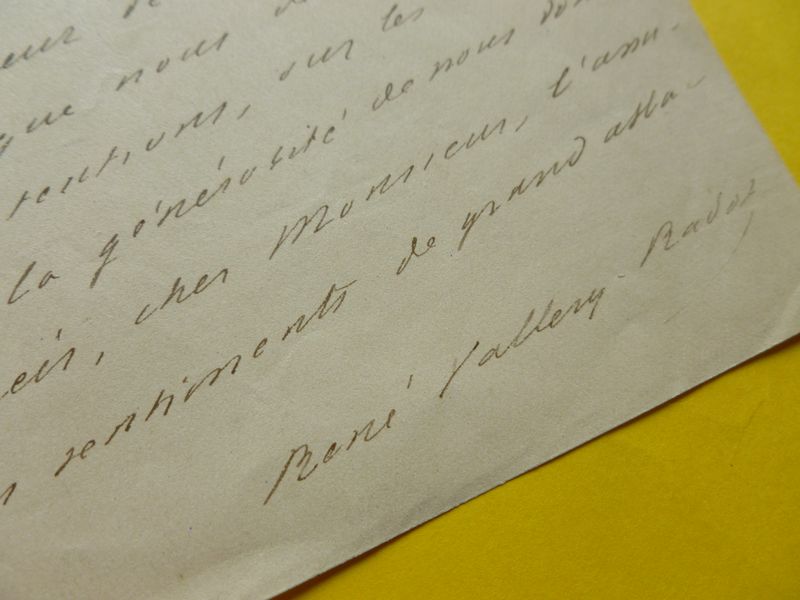 eur de
que nous de
tentions, sur les
la générosité de nous don
cher Monsieur, l'assu-
sentiments de grand atta-
René Vallery-Radot